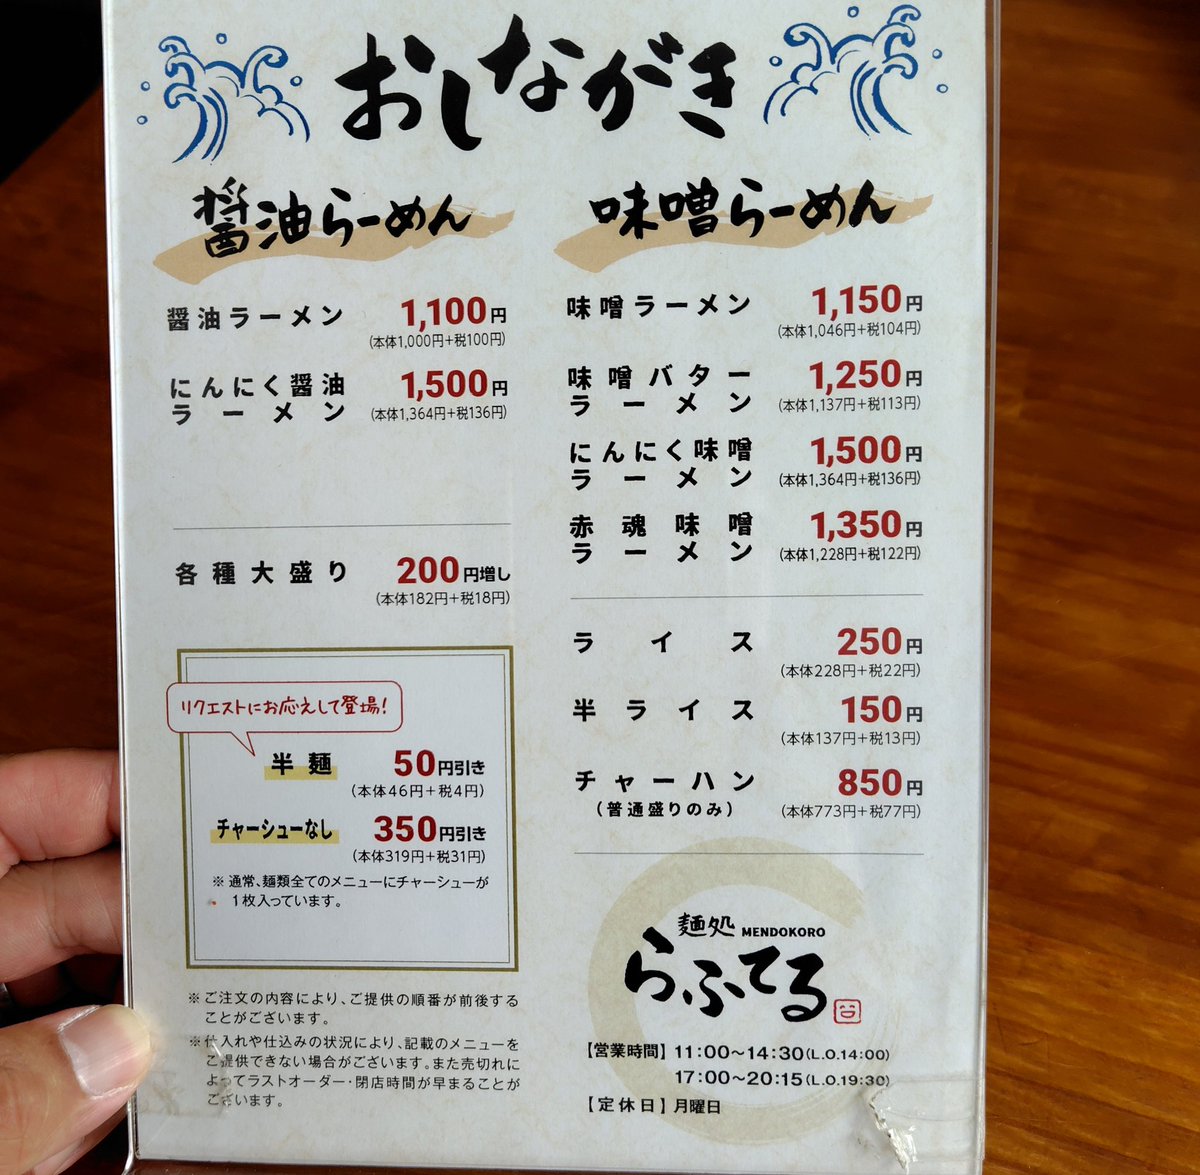 おしながき
醤油らーめん
醤油ラーメン 1,100円
(本体1,000円+税100円)
にんにく醤油
ラーメン 1,500円
(本体1,364円+税136円)
各種大盛り 200円増し
(本体182円+税18円)
リクエストにお応えして登場!
半麺 50円引き
(本体46円+税4円)
チャーシューなし 350円引き
(本体319円+税31円)
※通常、麺類全てのメニューにチャーシューが
1枚入っています。
※ご注文の内容により、ご提供の順番が前後する
ことがございます。
※仕入れや仕込みの状況により、記載のメニューを
ご提供できない場合がございます。また売切れに
よってラストオーダー・閉店時間が早まることが
ございます。
味噌らーめん
味噌ラーメン 1,150円
(本体1,046円+税104円)
味噌バター
ラーメン 1,250円
(本体1,137円+税113円)
にんにく味噌
ラーメン 1,500円
(本体1,364円+税136円)
赤魂味噌
ラーメン 1,350円
(本体1,228円+税122円)
ライス 250円
(本体228円+税22円)
半ライス 150円
(本体137円+税13円)
チャーハン 850円
(普通盛りのみ) (本体773円+税77円)
麺処 MENDOKORO
らふてる
【営業時間】11:00〜14:30(L.O.14:00)
17:00〜20:15(L.O.19:30)
【定休日】月曜日